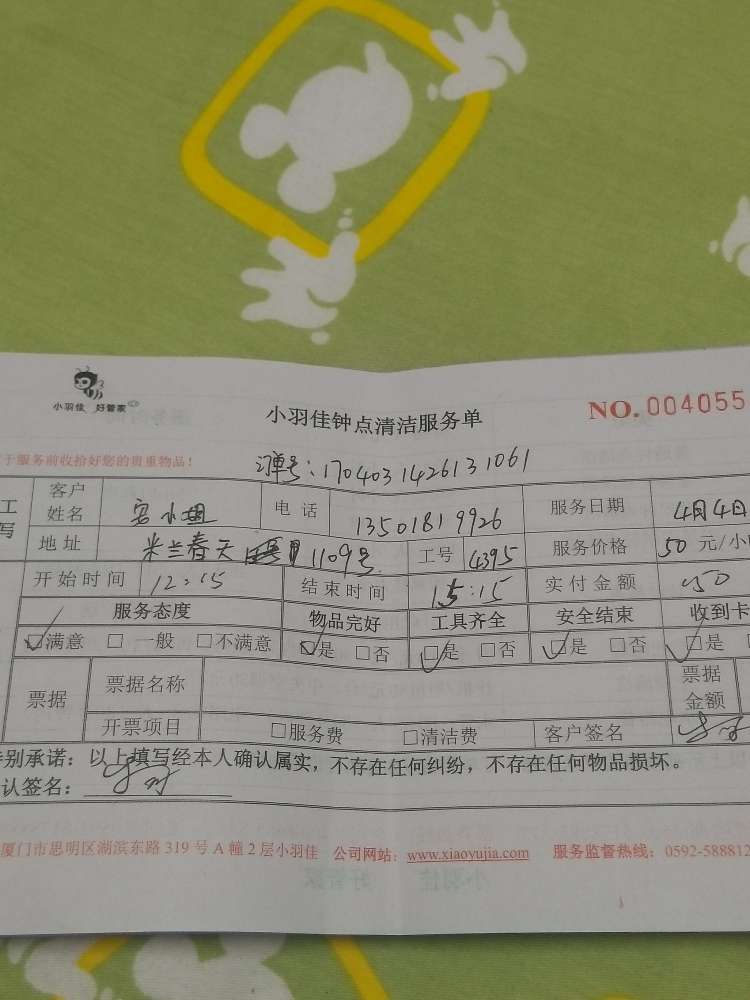 小羽佳 好管家
小羽佳钟点清洁服务单
NO. 004055
于服务前收拾好您的贵重物品!
订单号:170403142613 1061
工
写
客户
姓名
小姐
电 话
13501819926
服务日期
4月4日
地 址
米兰春天
1109号
工号
4395
服务价格
50 元/小
开始时间
12:15
结束时间
15:15
实付金额
服务态度
物品完好
工具齐全
安全结束
收到卡
☑满意 □ 一般 □不满意
☑是 □否
☑是 □否
☑是 □否
☑是
票据
票据名称
票据
金额
开票项目
□服务费
□清洁费
客户签名
特别承诺:以上填写经本人确认属实,不存在任何纠纷,不存在任何物品损坏。
认签名:
厦门市思明区湖滨东路 319 号 A 幢 2 层小羽佳 公司网站:www.xiaoyujia.com 服务监督热线:0592-588812